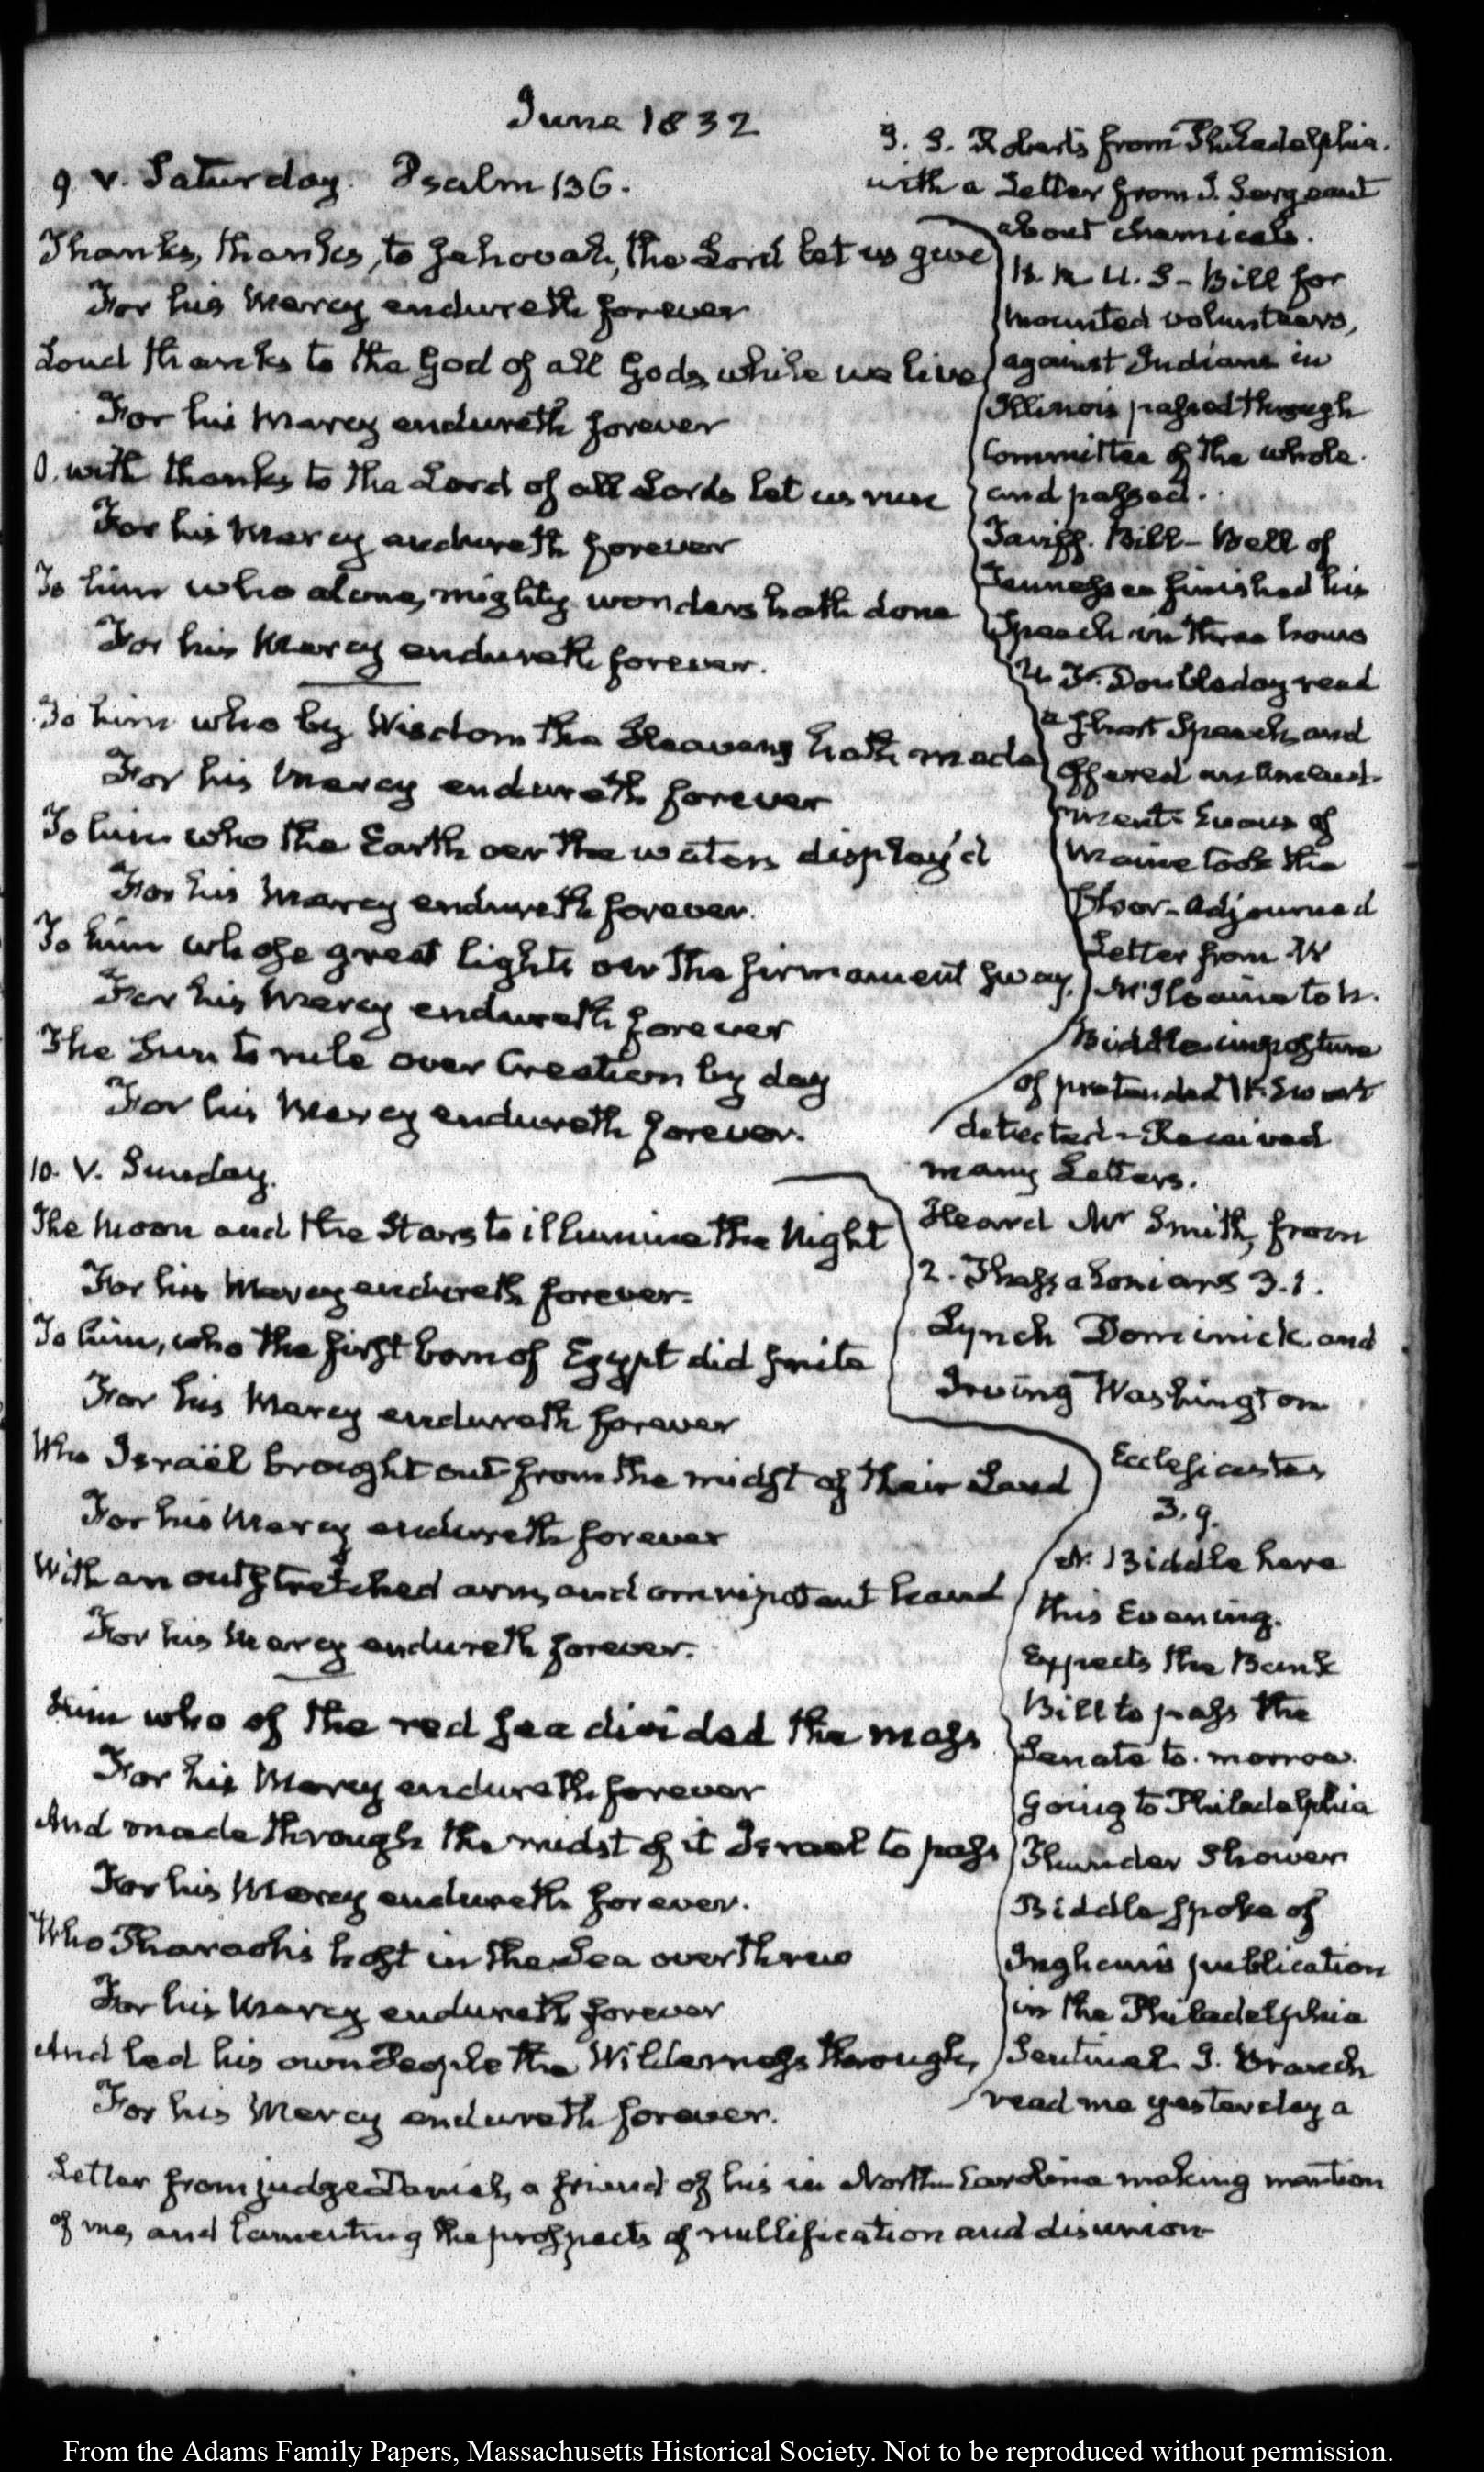 June 1832
9. V. Saturday. Psalm 136.
Thanks, thanks, to Jehovah, the Lord let us give
For his Mercy endureth forever
Loud thanks to the God of all Gods, while we live
For his Mercy endureth forever
O, with thanks to the Lord of all Lords let us run
For his Mercy endureth forever
To him who alone, mighty wonders hath done
For his Mercy endureth forever.
To him who by Wisdom the Heavens hath made
For his Mercy endureth forever
To him who the Earth oer the waters display'd
For his Mercy endureth forever.
To him whose great lights oer the firmament sway.
For his Mercy endureth forever
The Sun to rule over Creation by day
For his Mercy endureth forever.
J. S. Roberts from Philadelphia.
with a Letter from J. Sergeant
about chemicals.
H. R. U. S - Bill for
mounted volunteers,
against Indians in
Illinois passed through
Committee of the whole.
and passed.
Tariff. Bill - Bell of
Tennessee finished his
Speech in three hours
U. F. Doubleday read
a short Speech, and
offered an Amend-
ment - Evans of
Maine took the
floor - Adjourned
Letter from
to N.
Biddle - imposture
of pretended
detected - Received
many Letters.
10. V. Sunday.
The Moon and the Stars to illumine the Night
For his Mercy endureth forever.
To him, who the first born of Egypt did smite
For his Mercy endureth forever
Who Israël brought out from the midst of their Land
For his Mercy endureth forever
With an outstretched arm, and omnipotent hand
For his Mercy endureth forever.
Him who of the red sea divided the mass
For his Mercy endureth forever
And made through the midst of it Israel to pass
For his Mercy endureth forever.
Who Pharaoh's host in the Sea overthrew
For his Mercy endureth forever
And led his own People the Wilderness through,
For his Mercy endureth forever.
Heard Mr Smith, from
2. Thessalonians 3.1.
Lynch Dominick and
Irving Washington
Ecclesiastes
3.9.
N. Biddle here
this Evening.
Expects the Bank
Bill to pass the
Senate to-morrow.
Going to Philadelphia
Thunder Shower
Biddle spoke of
Ingham's publication
in the Philadelphia
Sentinel. J. Branch
read me yesterday a
Letter from judge Daniel, a friend of his in North-Carolina making mention
of me, and lamenting the prospects of nullification and disunion
From the Adams Family Papers, Massachusetts Historical Society. Not to be reproduced without permission.